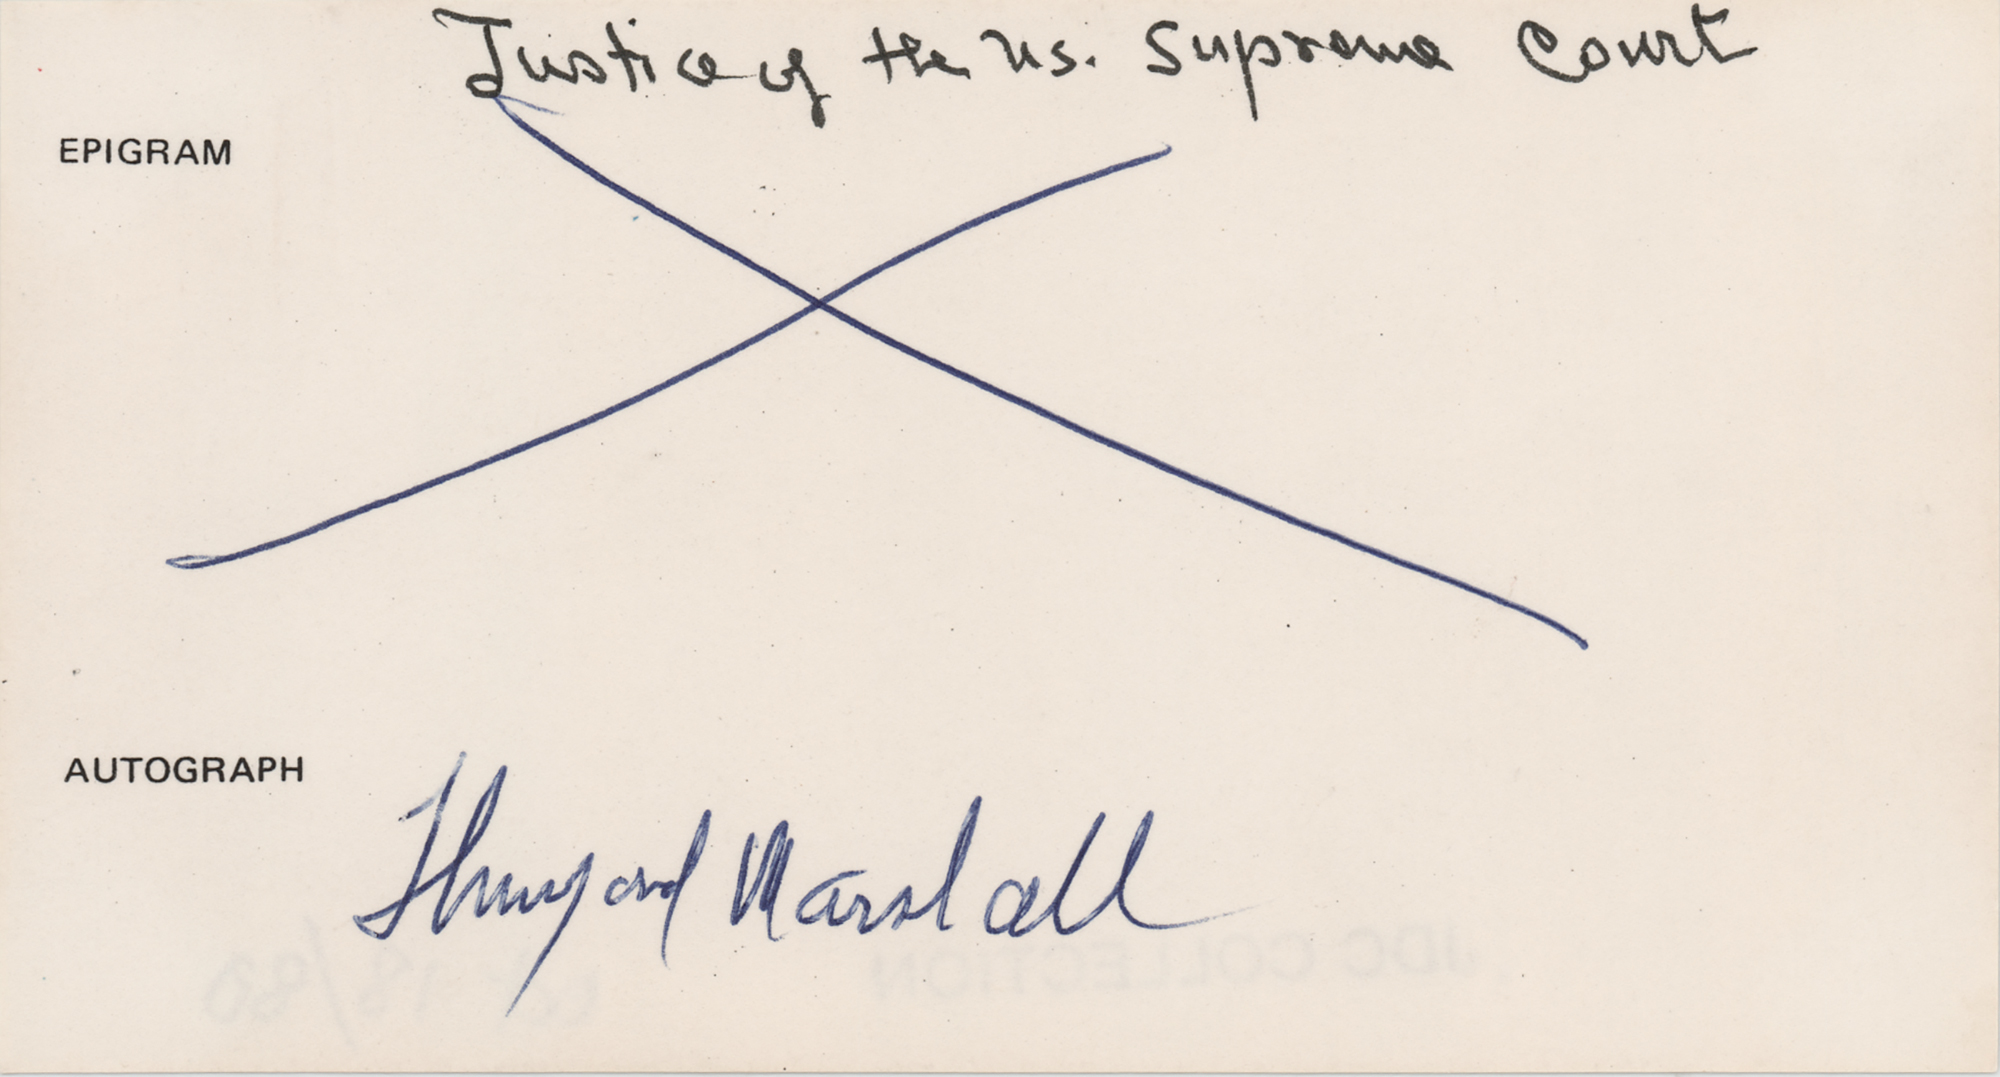 Justice of the U.S. Supreme Court
EPIGRAM
AUTOGRAPH
Thurgood Marshall
JDC COLLECTION